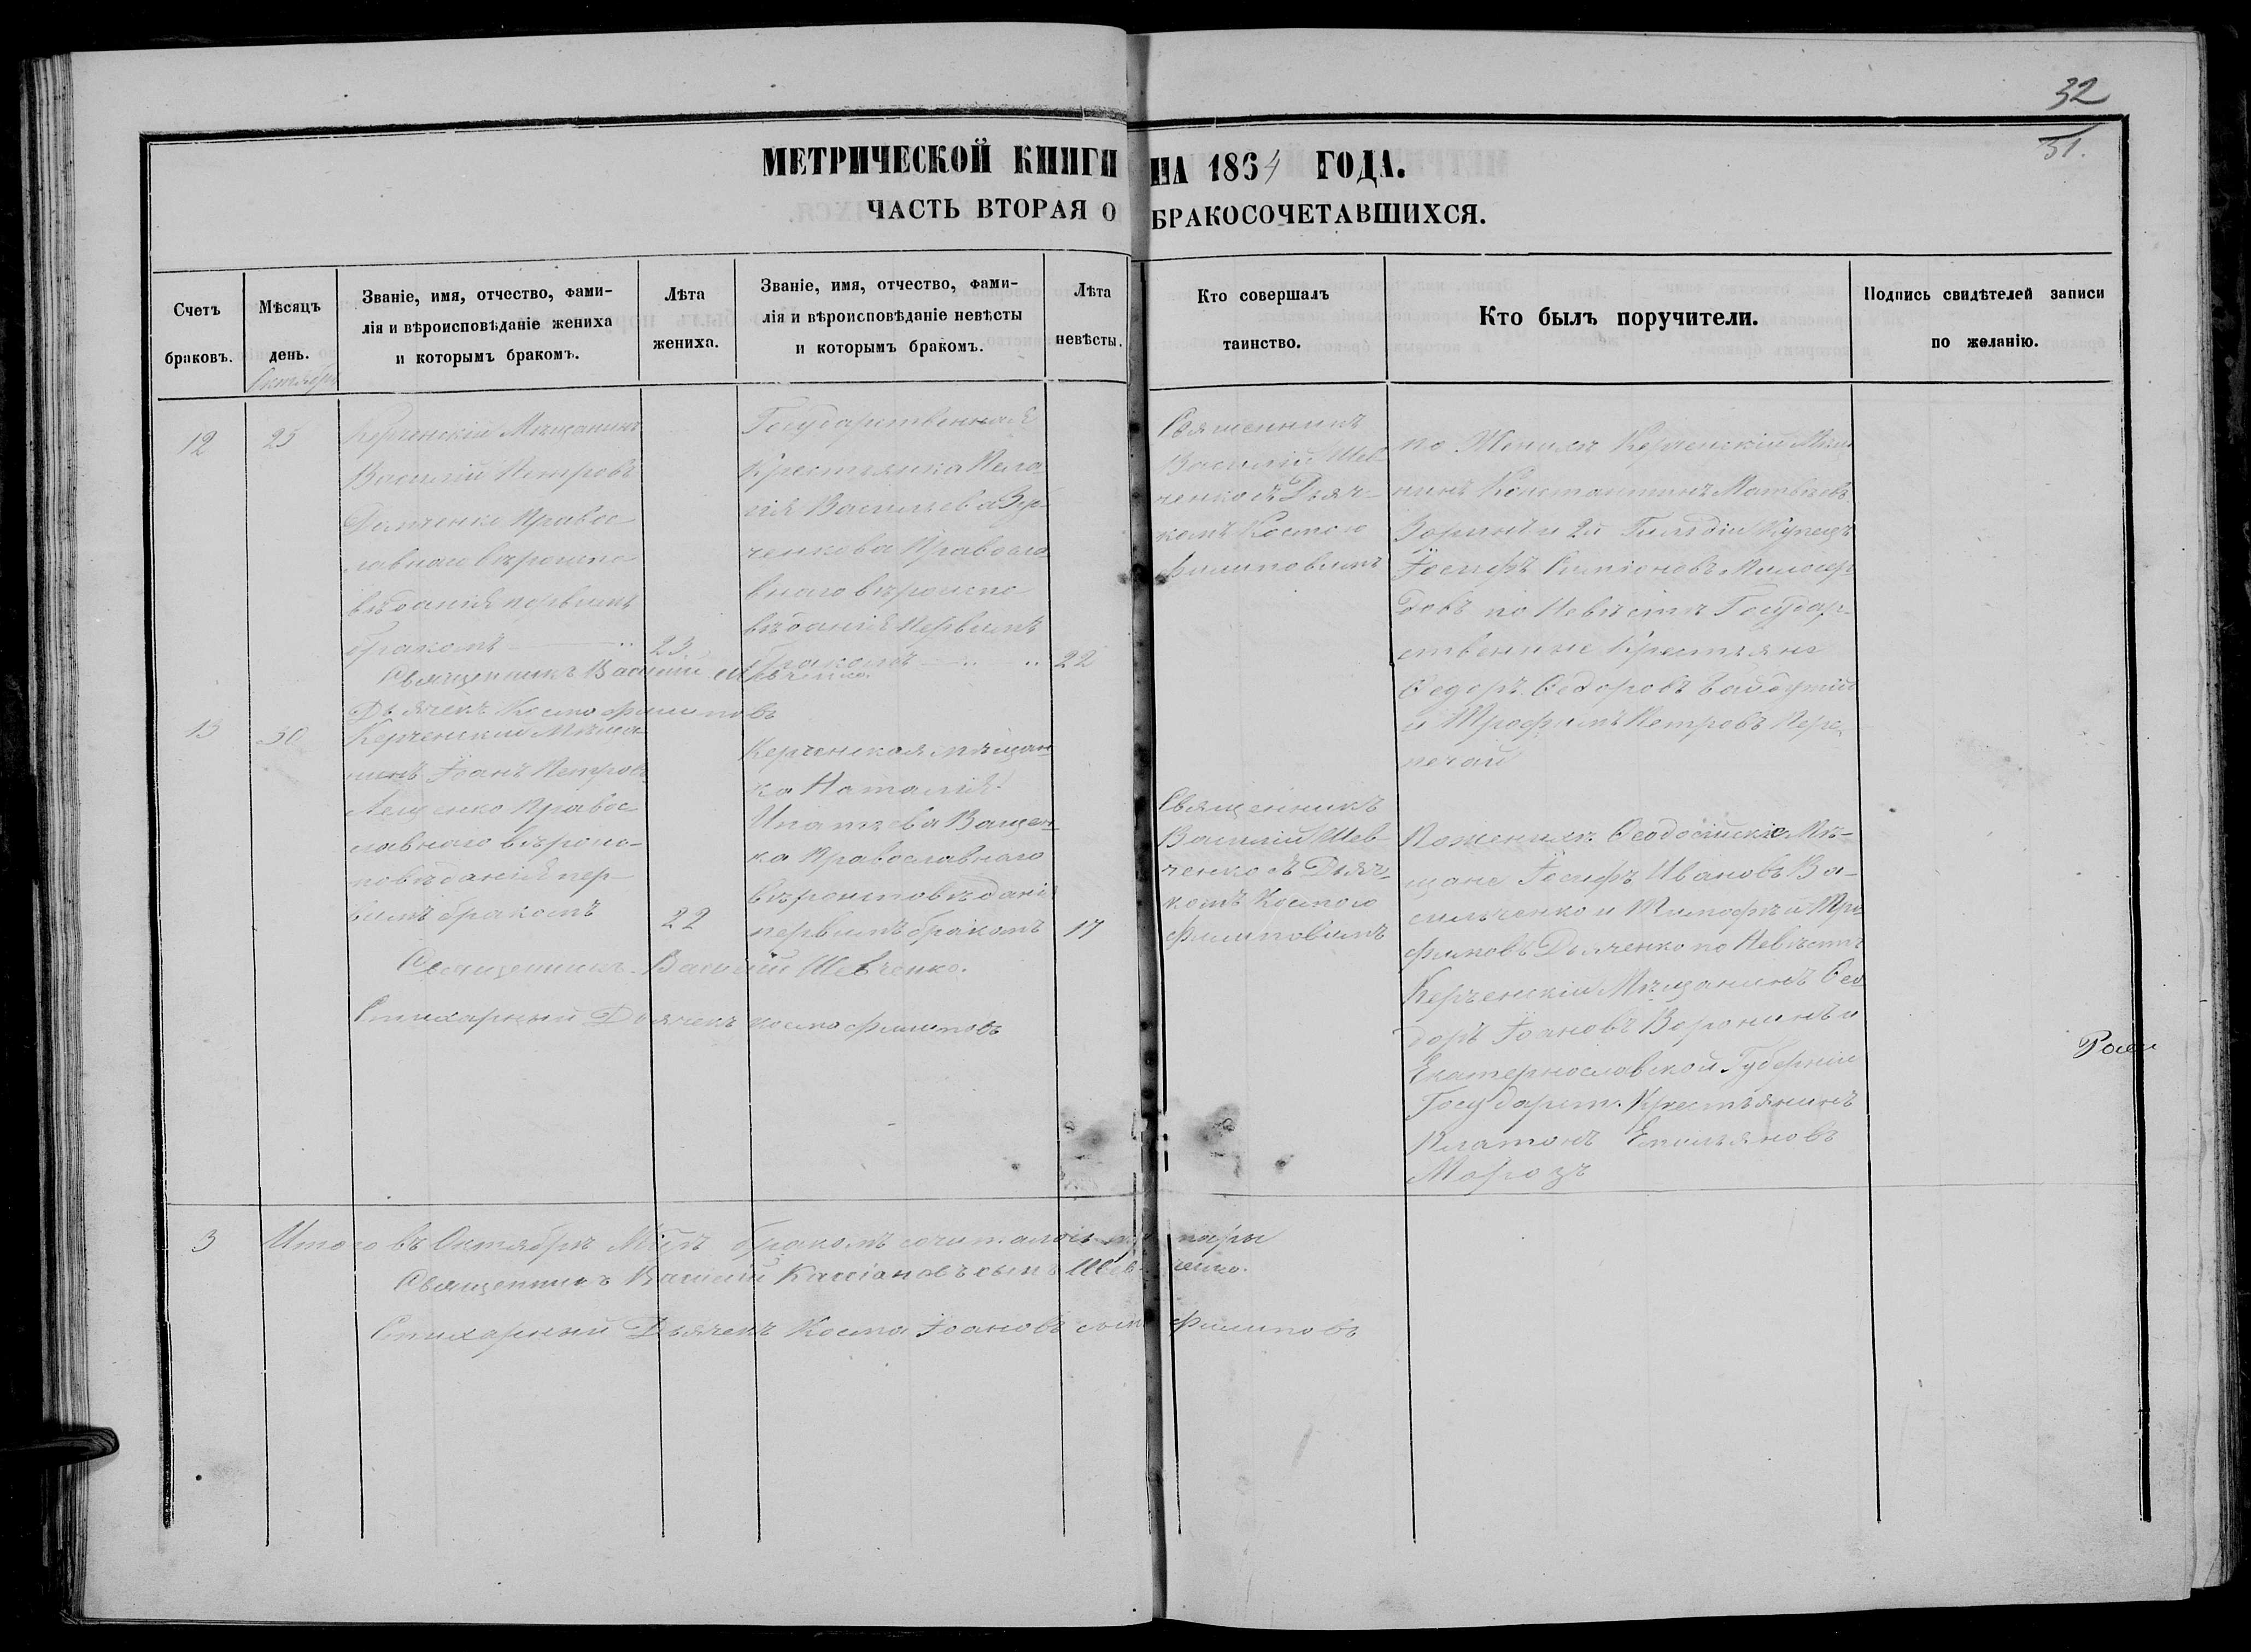 32
31.
МЕТРИЧЕСКОЙ КНИГИ НА 1864 ГОДА.
ЧАСТЬ ВТОРАЯ О БРАКОСОЧЕТАВШИХСЯ.
Счетъ
браковъ.
Мѣсяцъ
день.
Октябрь
Званіе, имя, отчество, фами-
лія и вѣроисповѣданіе жениха
и которымъ бракомъ.
Лѣта
жениха.
Званіе, имя, отчество, фами-
лія и вѣроисповѣданіе невѣсты
и которымъ бракомъ.
Лѣта
невѣсты.
Кто совершалъ
таинство.
Кто былъ поручители.
Подпись свидѣтелей записи
по желанію.
12
25
Керченскій Мѣщанинъ
Василій Петровъ
Правос
лавнаго вѣроиспо
вѣданія первымъ
бракомъ
23
Государственная
Крестьянка Пела
гія Васильева
ченкова Правосла
внаго вѣроиспо
вѣданія Первымъ
бракомъ
22
Священникъ
Василій Шев-
ченко съ Дьяч-
комъ Космою
Филиповымъ
по Женихѣ Керченскій Мѣща
нинъ Константинъ Матвѣевъ
и 2й Гильдіи Купецъ
Іосифъ Симіоновъ Милосер
довъ по Невѣстѣ Государ-
ственные Крестьяне
Федоръ Федоровъ
и Трофимъ Петровъ Пере
печай
Священникъ Василій Шевченко.
Дьячекъ Косма Филиповъ
13
30
Керченскій Мѣща
нинъ Іоанъ Петровъ
Лещенко Правос
лавнаго вѣроис-
повѣданія пер-
вымъ бракомъ
22
Керченская мѣщан
ка Наталія
Ипатьева Ващен-
ка Православнаго
вѣроисповѣданія
первымъ бракомъ
17
Священникъ
Василій Шев-
ченко съ Дьяч-
комъ Космою
Филиповымъ
По женихѣ Феодосійскіе Мѣ-
щане Іосифъ Ивановъ Ва-
сильченко и Тимофѣй Тро
фимовъ Дьяченко по Невѣстѣ
Керченскій Мѣщанинъ Фео
доръ Іоановъ Воронинъ и
Екатеринославской Губерніи
Государст. Крестьянинъ
Платонъ Емильяновъ
Морозъ
Священникъ Василій Шевченко.
Стихарный Дьячекъ Косма Филиповъ
3
Итого въ Октябрѣ Мцѣ бракомъ сочиталось три пары
Священникъ Василій Кассіановъ сынъ Шевченко.
Стихарный Дьячекъ Косма Іоановъ сынъ Филиповъ